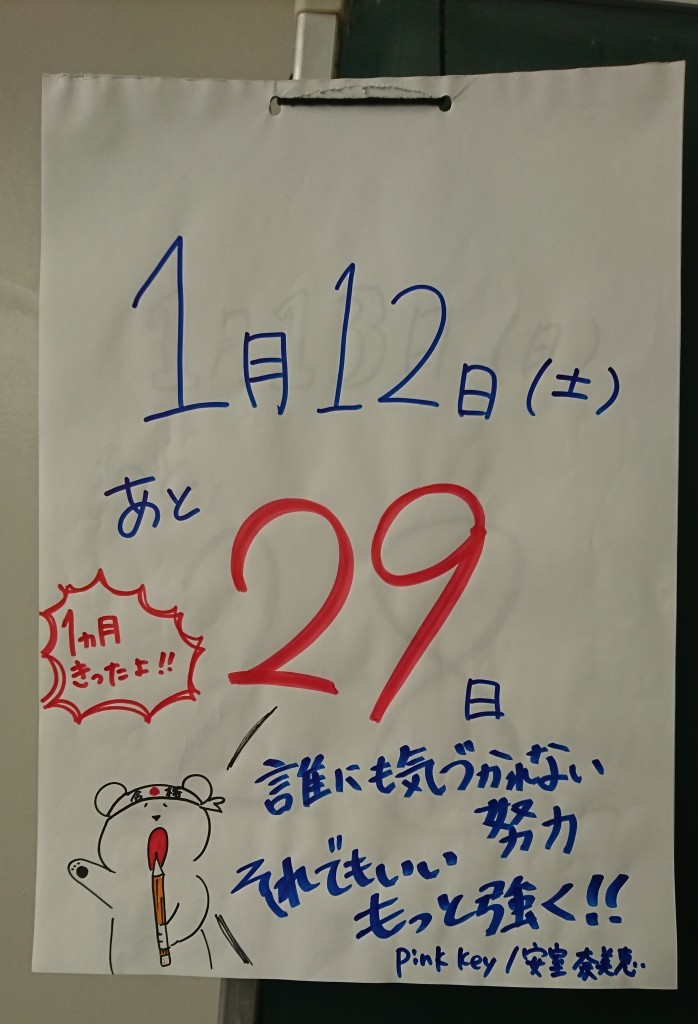 1月12日(土)
あと
29日
1ヵ月
きったよ!!
誰にも気づかれない
努力
それでもいい
もっと強く!!
pink key / 安室奈美恵..